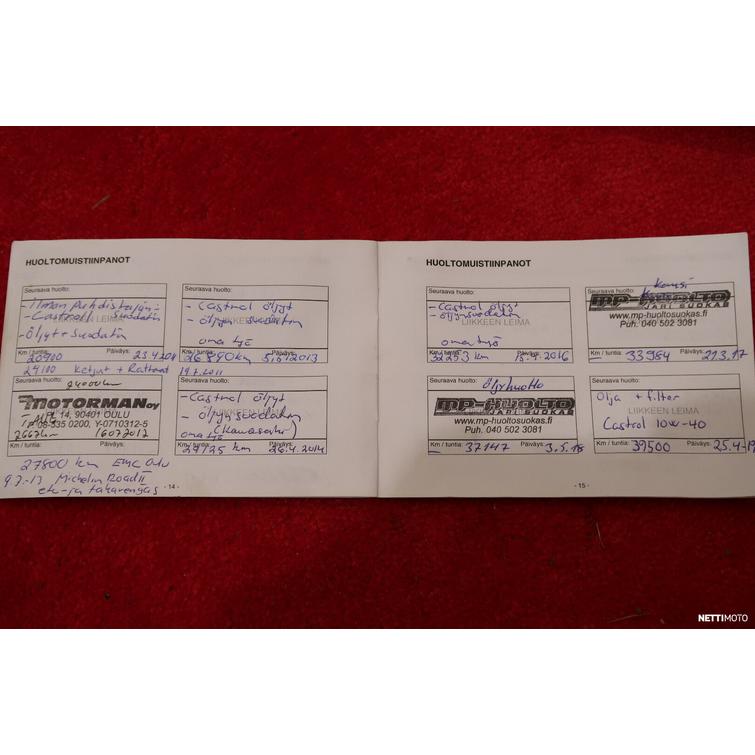 HUOLTOMUISTIINPANOT
Seuraava huolto:
- Castroll suodatin
LIIKKEEN LEIMA
- Öljyt + Suodatin
Km / tuntia: 20900 Päiväys:
24100 Ketjut + Rattaat 19.7.2011
Seuraava huolto:
- Castrol öljyt
- öljyn suodatin
oma työ
Km / tuntia: Päiväys: 5.10 2013
Seuraava huolto: 24000km
MOTORMAN OY
PL 14, 90401 OULU
08-535 0200, Y-0710312-5
16072012
Km / tuntia: Päiväys:
Seuraava huolto:
- Castrol öljyt
LIIKKEEN LEIMA
- öljyn suodatin
oma työ (Kawasaki)
Km / tuntia: 29125 km Päiväys: 26.4.2014
27800 km EMC Oulu
9.7.-13 Michelin Road II
etu-ja takarengas
- 14 -
HUOLTOMUISTIINPANOT
Seuraava huolto:
- Castrol öljyt
- öljynsuodatin
LIIKKEEN LEIMA
oma työ
Km / tuntia: 32253 km Päiväys: 2016
Seuraava huolto:
MP-HUOLTO
JARI SUOKAS
www.mp-huoltosuokas.fi
Puh. 040 502 3081
Km / tuntia: 33984 Päiväys: 21.3.17
Seuraava huolto: Öljyhuolto
MP-HUOLTO
JARI SUOKAS
www.mp-huoltosuokas.fi
Puh. 040 502 3081
Km / tuntia: 37147 Päiväys: 3.5.18
Seuraava huolto:
Olja + filter
LIIKKEEN LEIMA
Castrol 10w-40
Km / tuntia: 39500 Päiväys: 25.4-19
- 15 -
NETTIMOTO